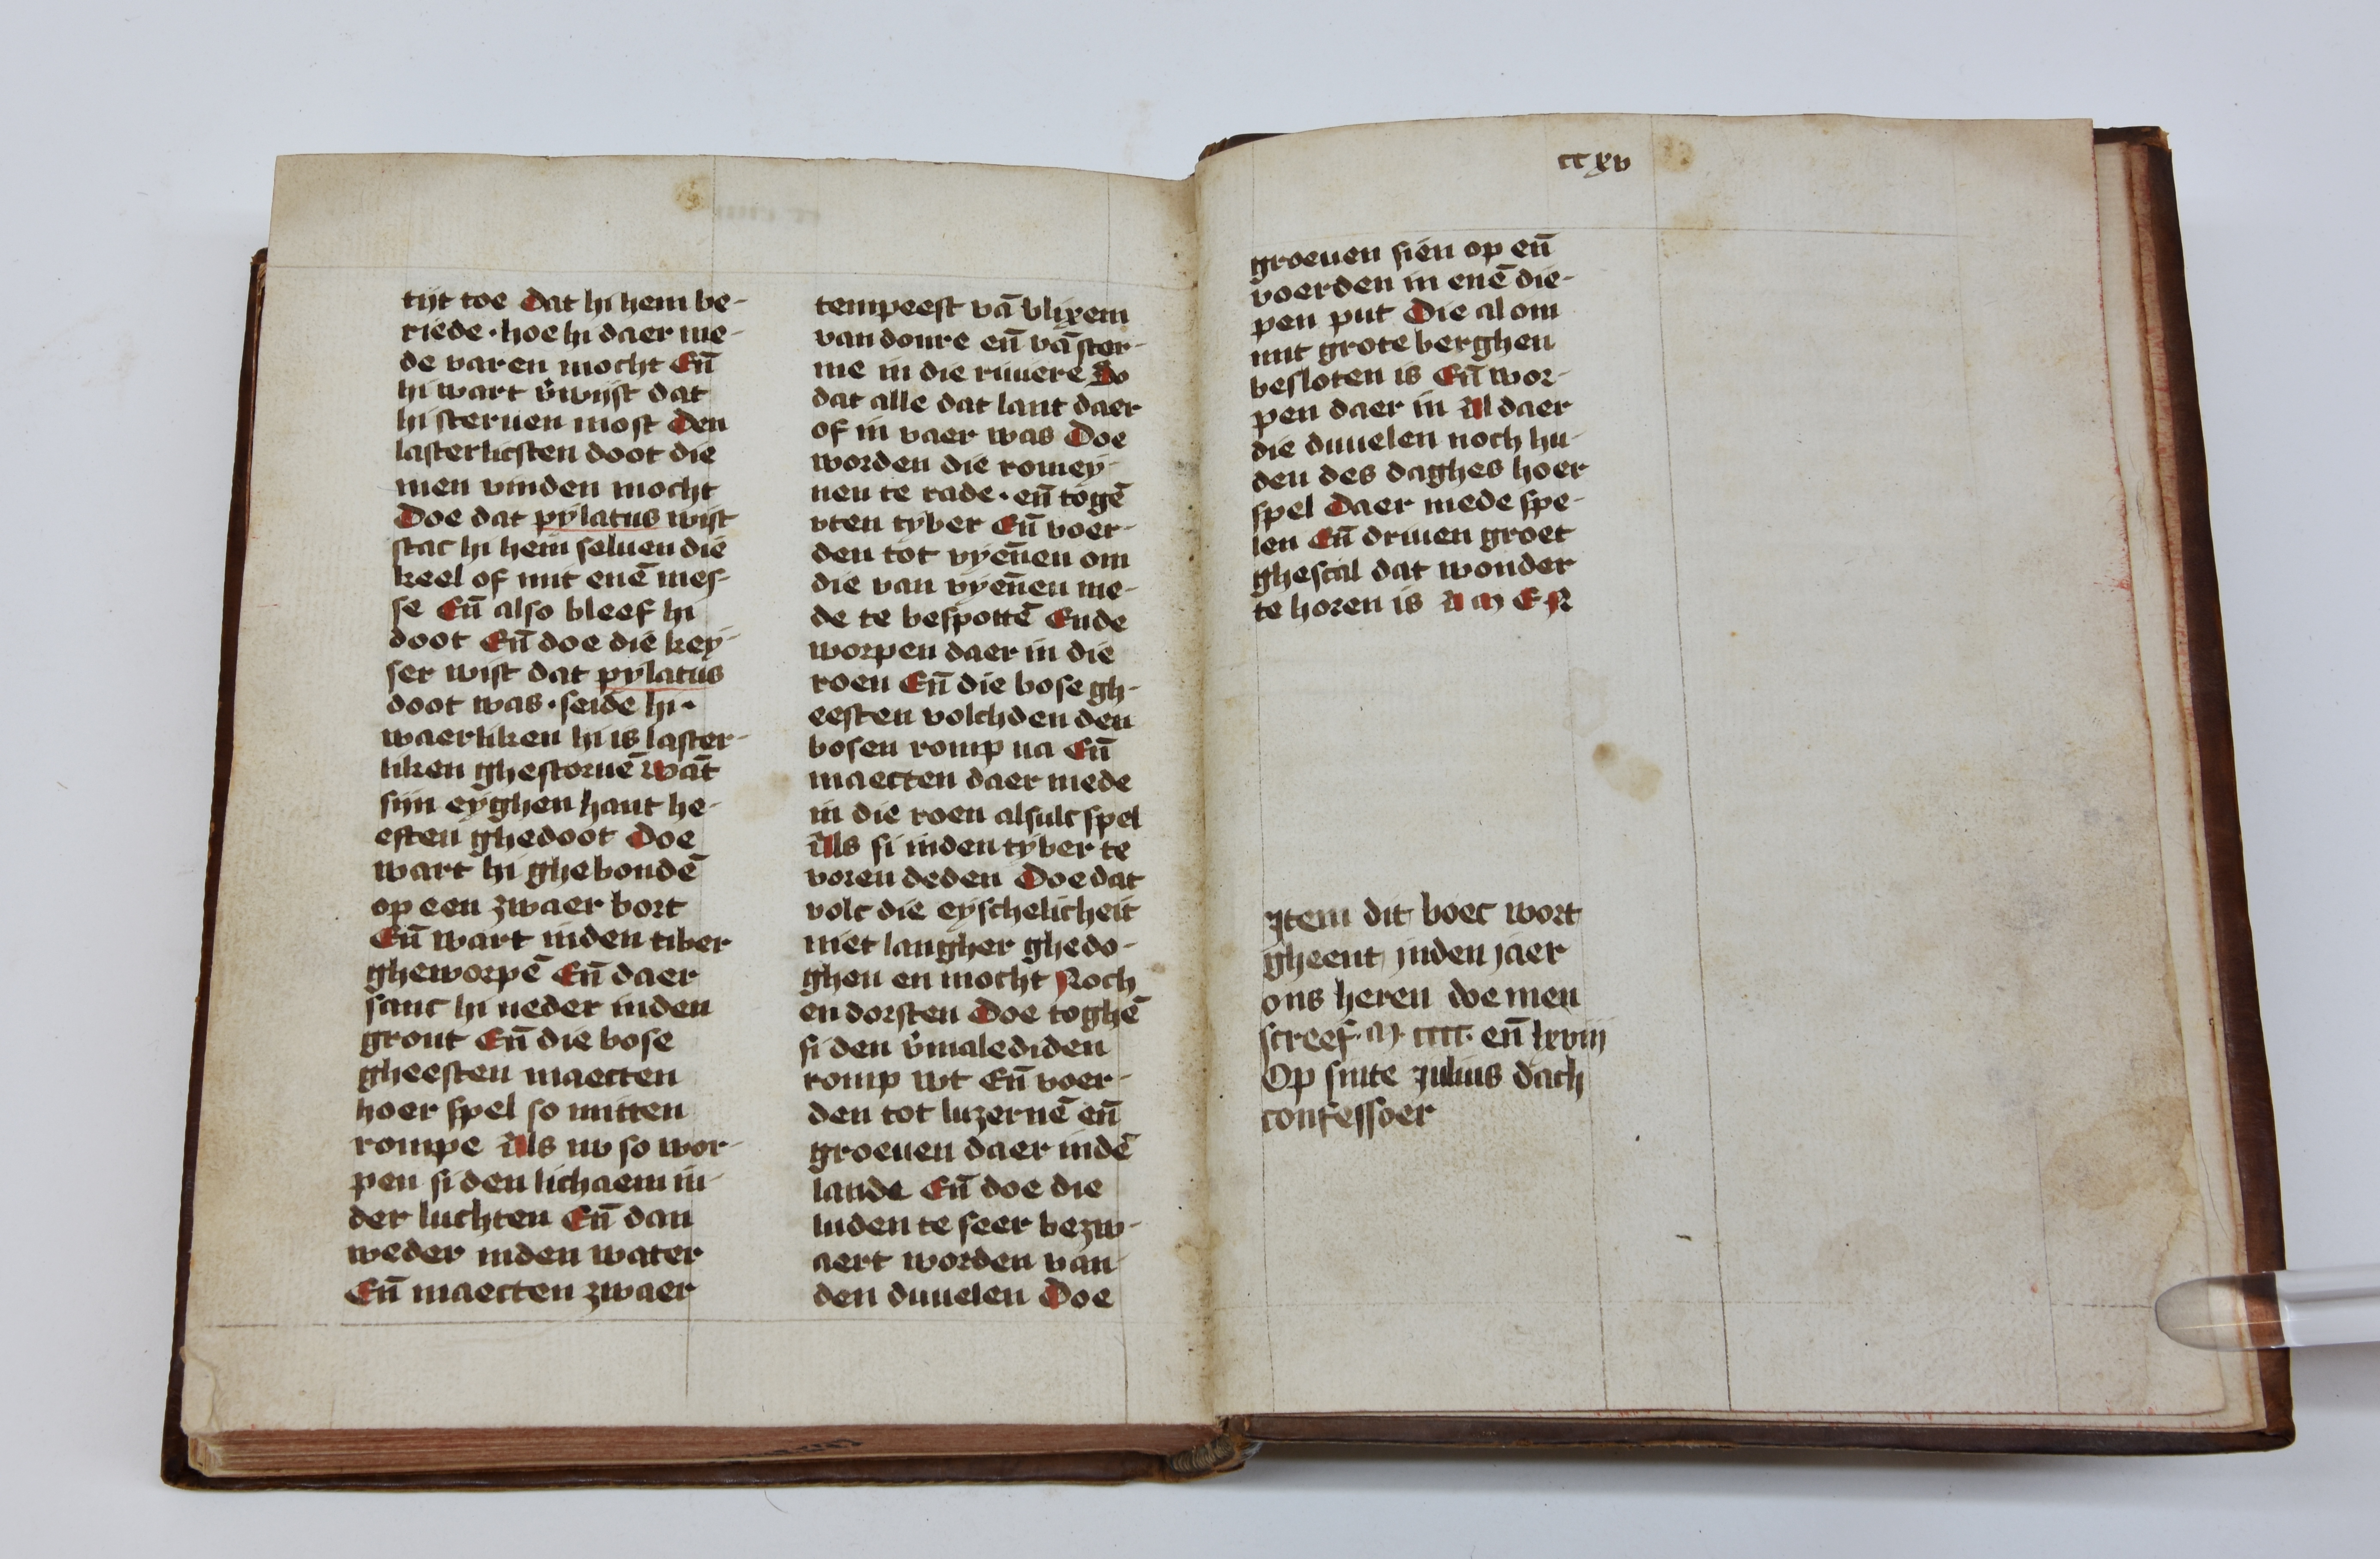 tijt toe Dat hi hem be-
riede · hoe hi daer me-
de varen mocht Eñ
hi wart v̄wijst dat
hi steruen most Den
lasterlicsten doot die
men vinden mocht
Doe dat pylatus wist
stac hi hem seluen die
keel of mit enē mes-
se Eñ also bleef hi
doot Eñ doe die key-
ser wist dat pylatus
doot was · seide hi ·
waerliken hi is laster-
liken ghestoruē Wāt
sijn eyghen hant he-
esten ghedoot Doe
wart hi ghebondē
op een zwaer bort
Eñ wart inden tiber
gheworpē Eñ daer
sanc hi neder inden
gront Eñ die bose
gheesten maecten
hoer spel so mitten
rompe Als nv so wor-
pen si den lichaem in-
der luchten Eñ dan
weder inden water
Eñ maecten zwaer
tempeest vā blixem
van donre eñ vā stor-
me in die riuiere So
dat alle dat lant daer
of in vaer was Doe
worden die romey-
nen te rade · eñ togē
vten tyber Eñ voer-
den tot vyēnen om
die van vyēnen me-
de te bespottē Ende
worpen daer in die
roen Eñ die bose gh-
eesten volchden den
bosen romp na Eñ
maecten daer mede
in die roen alsulc spel
Als si inden tyber te
voren deden Doe dat
volc die eyschelicheit
niet langher ghedo-
ghen en mocht Noch
en dorsten Doe toghē
si den v̄malediden
romp wt Eñ voer-
den tot luzernē eñ
groeuen daer indē
lande Eñ doe die
luden te seer bezw-
aert worden van
den duuelen Doe
ccxv
groeuen sien op eñ
voerden in enē die-
pen put Die al om
mit grote berghen
besloten is Eñ wor-
pen daer in Al daer
die duuelen noch hu-
den des daghes hoer
spel Daer mede spe-
len Eñ driuen groet
ghescal dat wonder
te horen is AMEN
Item dit boec wort
gheent inden jaer
ons heren doe men
screef · M · cccc · eñ lxviij
Op sinte Julius dach
confessoer